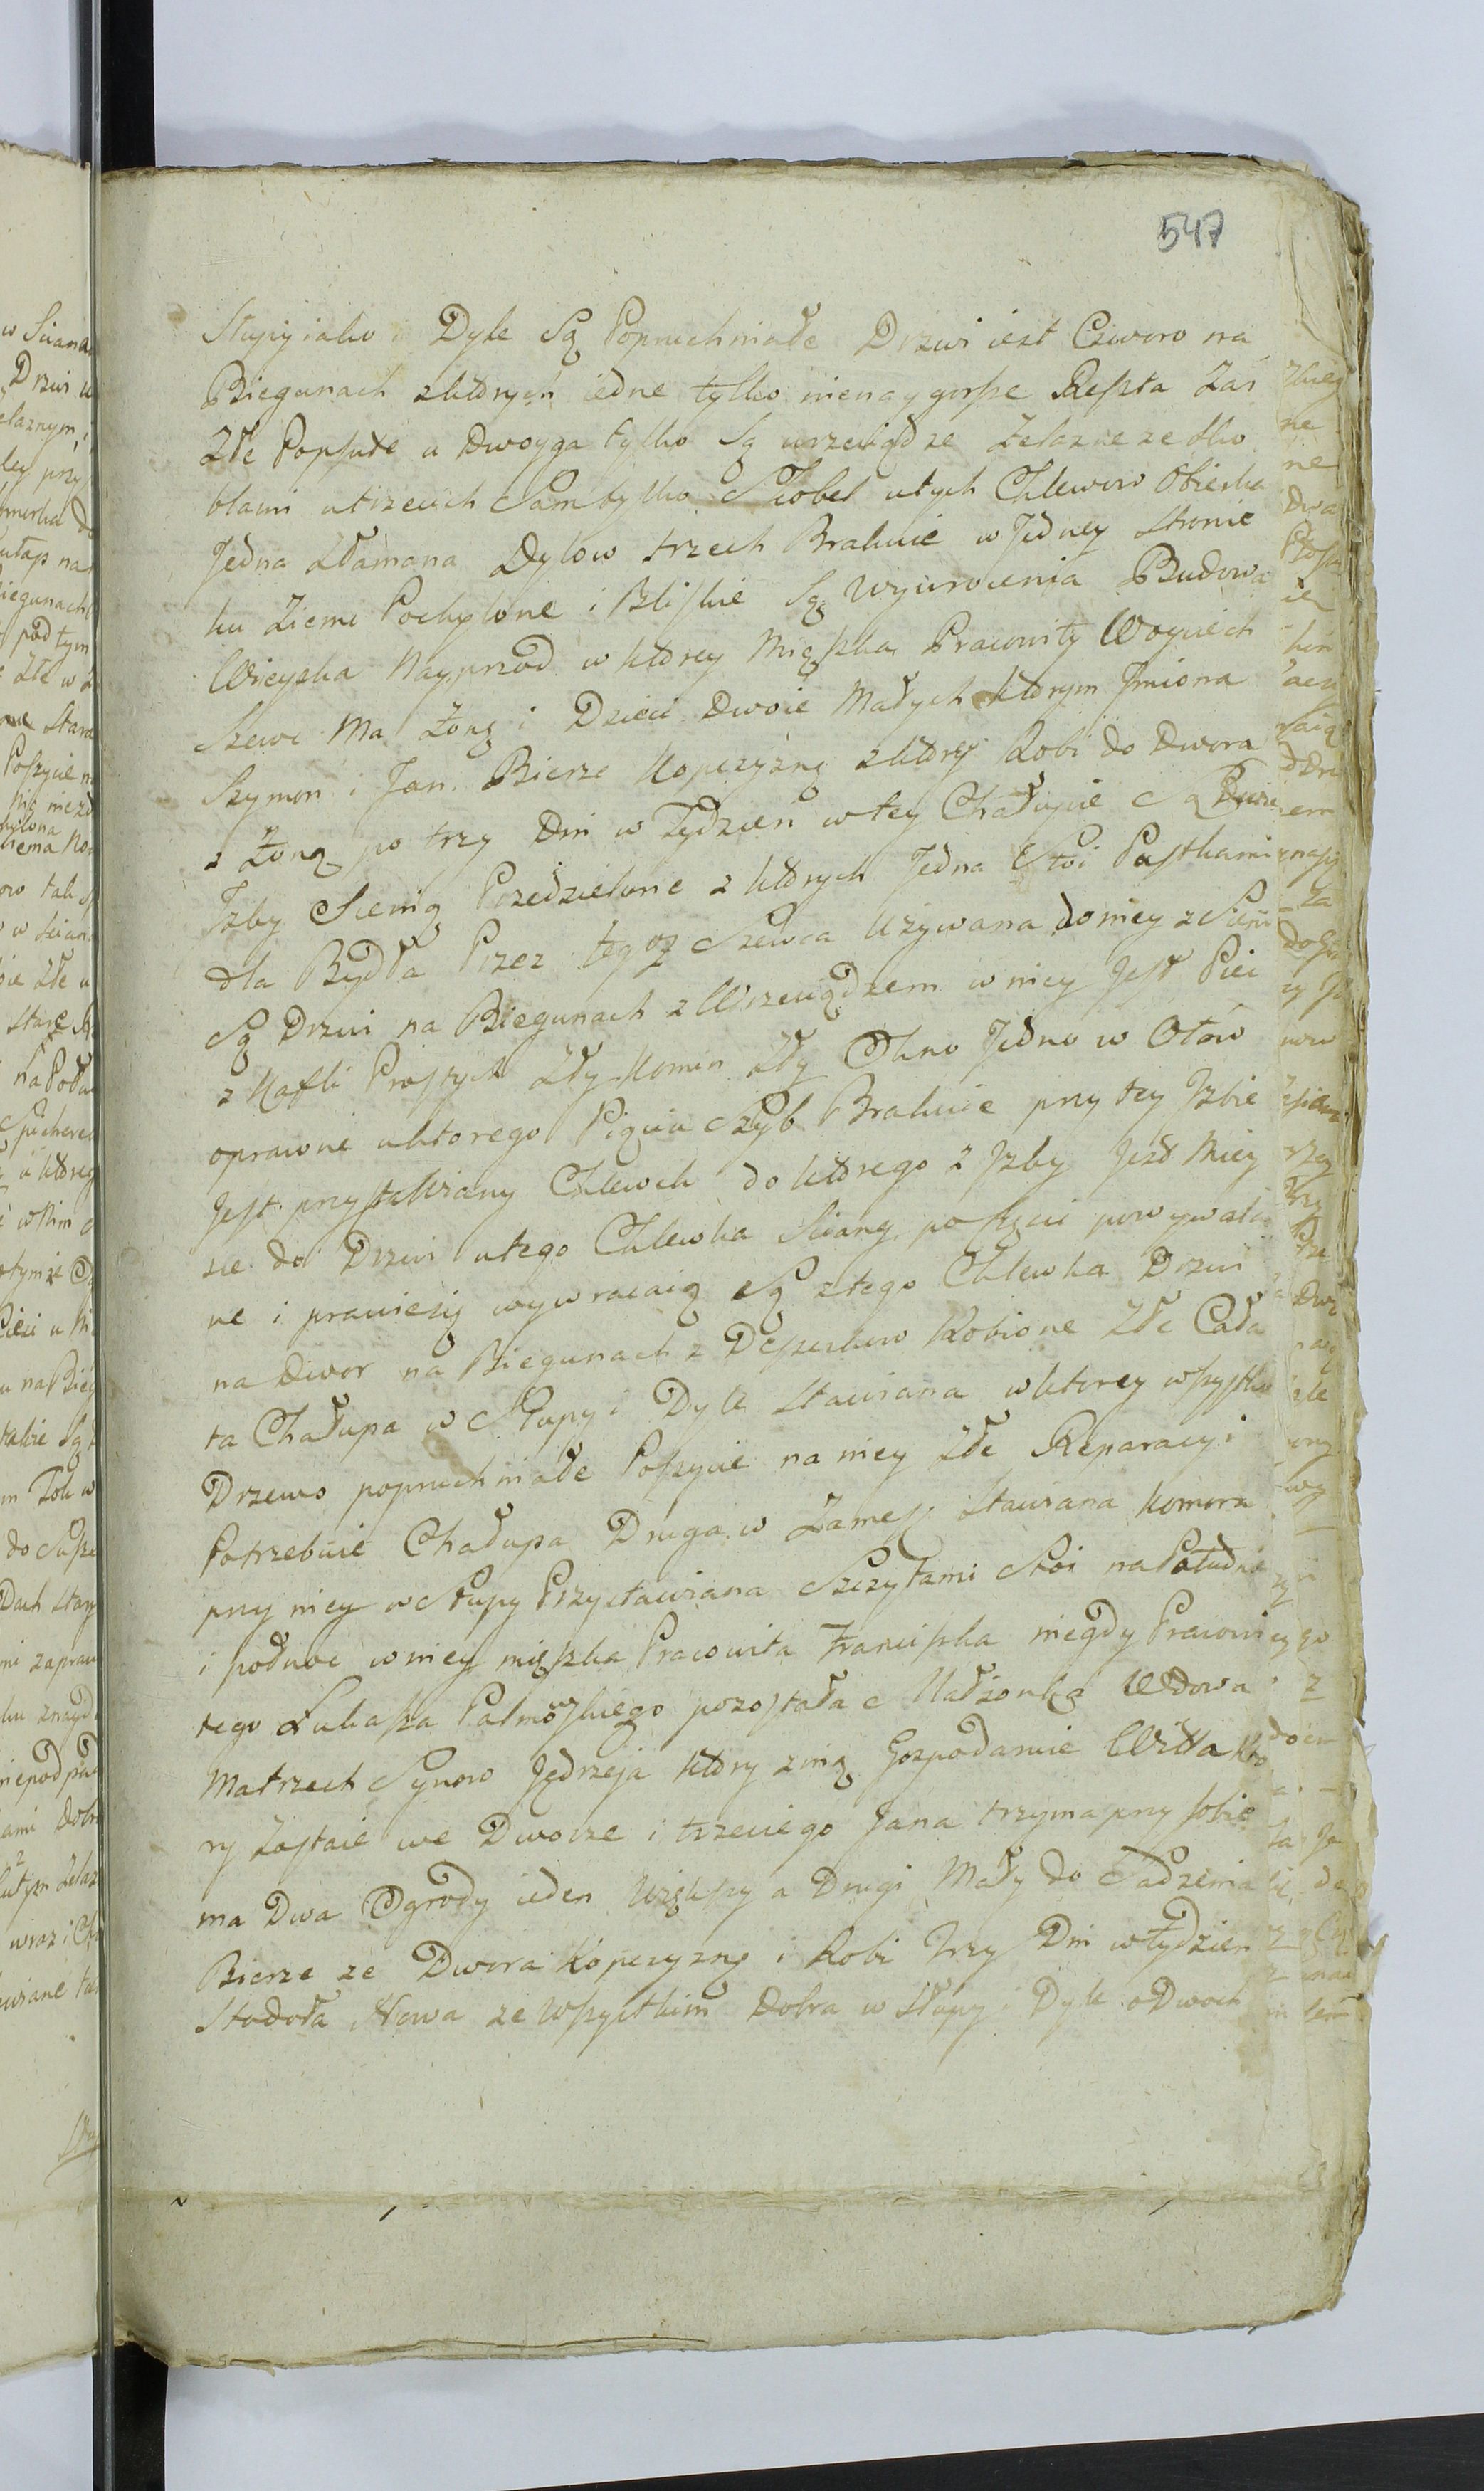 547
Słupy iako i Dyle Są Popruchniałe Drzwi iest Czworo na
Biegunach z których iedne tylko nienaygorsze Reszta Zaś
Złe Popsute u dwoyga tylko Są wrzeciądze Zelazne ze sko
blami utrzecich Sam tylko Skobel utych Chlewow Obieska
Jedna Złamana Dylow trzech Brakuie w Jedney Stronie
ku Ziemi Pochylone i Bliskie Są Wywrocenia Budowa
Wieyska Nayprzod w ktorey Mięszka Pracowity Woyciech
Szewc Ma Zonę i Dzieci Dwoie Małych ktorym Jmiona
Szymon i Jan. Bierze Kopczyznę z ktorey Robi do Dwora
z Zoną po trzy Dni w Tydzien w tey Chałupie Są Dwie
Jzby Sienią Przedzielone z ktorych Jedna Stoi Pustkami
dla Bydła Przez tegoz Szewca Używana do niey z Sieni
Są Drzwi na Biegunach z Wrzeciądzem w niey Jest Piec
z Kafli Prostych Zły Komin Zły Okno Jedno w Ołow
oprawne u ktorego Pięciu Szyb Brakuie przy tey Jzbie
Jest przystawiany Chlewek do ktorego z Jzby Jest Miey
sce do Drzwi u tego Chlewka Sciany poszęci powywalo
ne i prawie się wywracaią Są z tego Chlewka Drzwi
na dwor na Biegunach z Deszczek Robione Złe Cała
ta Chałupa w Słupy i Dyle Stawiana w ktorey wszystko
Drzewo popruchniałe Poszycie na niey Złe Reparacyi
Potrzebuie Chałupa Druga w Zamęg Stawiana komora
przy niey w Słupy Przystawiana Szczytami Stoi na Południe
i połnoc w niey mięszka Pracowita Franciszka niegdy Pracowi
tego Łukasza Palmowskiego pozostała Małżonka Wdowa
Ma trzech Synow Jędrzeja ktory z nią Gospodaruie Witta kto
ry Zostaie we Dworze i trzeciego Jana trzyma przy sobie
ma Dwa Ogrody ieden Większy a Drugi Mały do Sadzenia
Bierze ze Dwora Kopczyznę i Robi trzy Dni w tydzien
Stodoła Nowa ze wszystkim Dobra w Słupy i Dyle o Dwoch